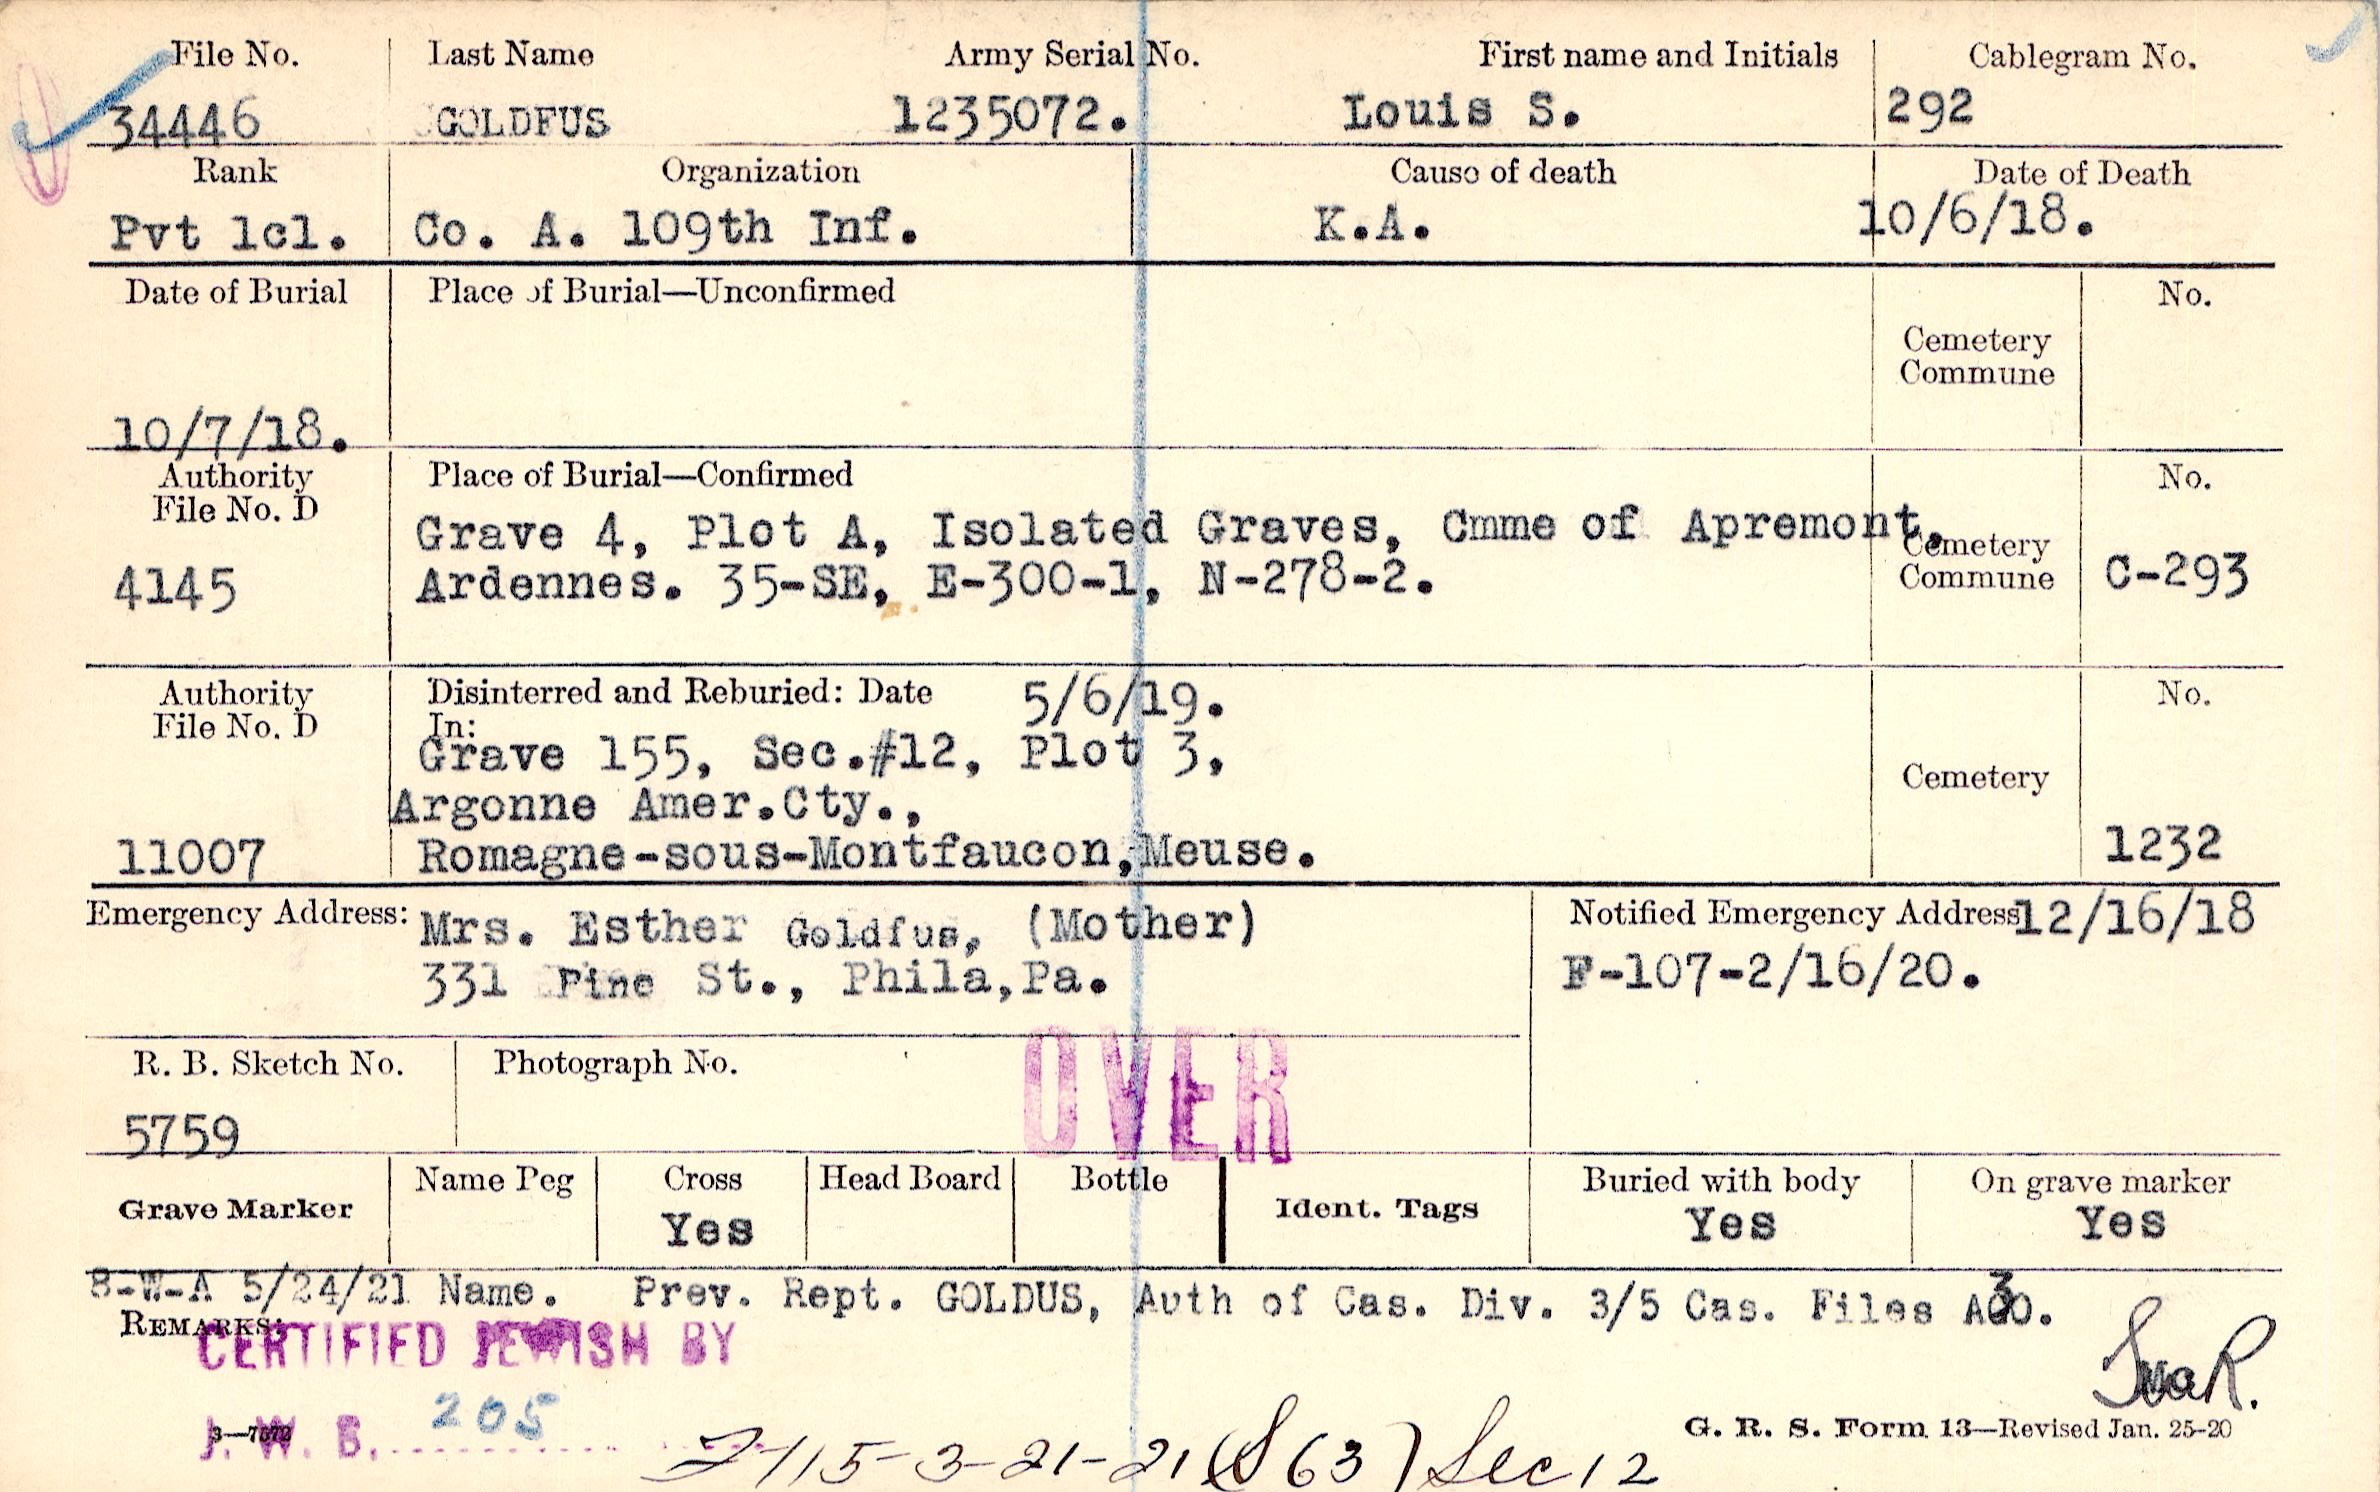 File No. Last Name Army Serial No. First name and Initials Cablegram No.
34446 GOLDFUS 1235072. Louis S. 292
Rank Organization Cause of death Date of Death
Pvt 1cl. Co. A. 109th Inf. K.A. 10/6/18.
Date of Burial Place of Burial—Unconfirmed No.
Cemetery
Commune
10/7/18.
Authority Place of Burial—Confirmed No.
File No. D
Grave 4, Plot A, Isolated Graves, Cmme of Apremont,
Cemetery
4145 Ardennes. 35-SE, E-300-1, N-278-2. Commune C-293
Authority Disinterred and Reburied: Date 5/6/19. No.
File No. D In:
Grave 155, Sec.#12, Plot 3,
Cemetery
Argonne Amer.Cty.,
11007 Romagne-sous-Montfaucon,Meuse. 1232
Emergency Address: Mrs. Esther Goldfus, (Mother) Notified Emergency Address 12/16/18
331 Pine St., Phila,Pa. F-107-2/16/20.
R. B. Sketch No. Photograph No. OVER
5759
Grave Marker Name Peg Cross Head Board Bottle Ident. Tags Buried with body On grave marker
Yes Yes Yes
8-W-A 5/24/21 Name. Prev. Rept. GOLDUS, Auth of Cas. Div. 3/5 Cas. Files
REMARKS:
CERTIFIED JEWISH BY
J. W. B. 205
3—7672
G. R. S. Form 13—Revised Jan. 25-20
3-21-21 (S63) Sec 12